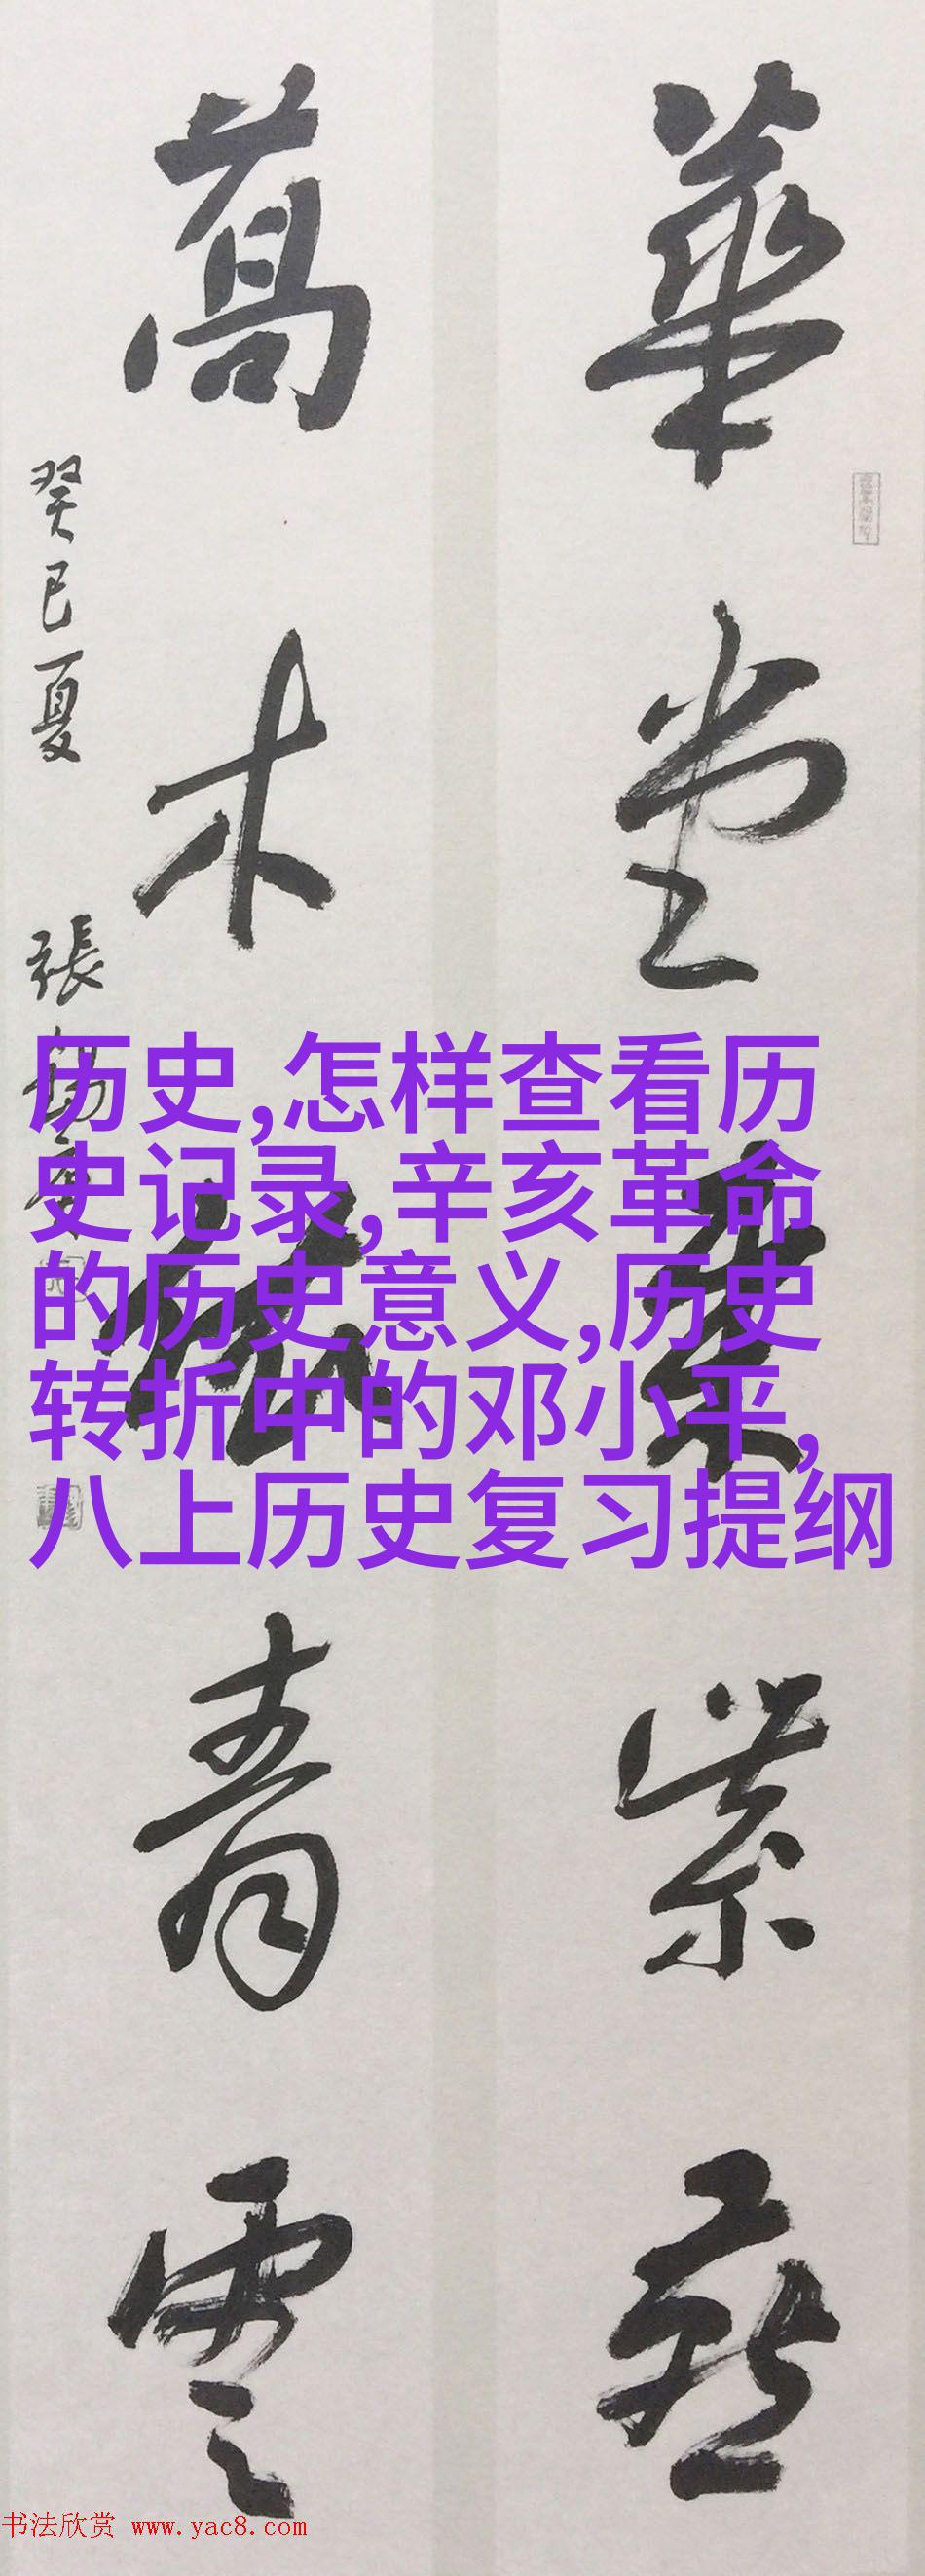 華堂
紫
萬木
青雲
癸巳夏
張
历史,怎样查看历
史记录,辛亥革命
的历史意义,历史
转折中的邓小平,
八上历史复习提纲
书法欣赏 www.yac8.com